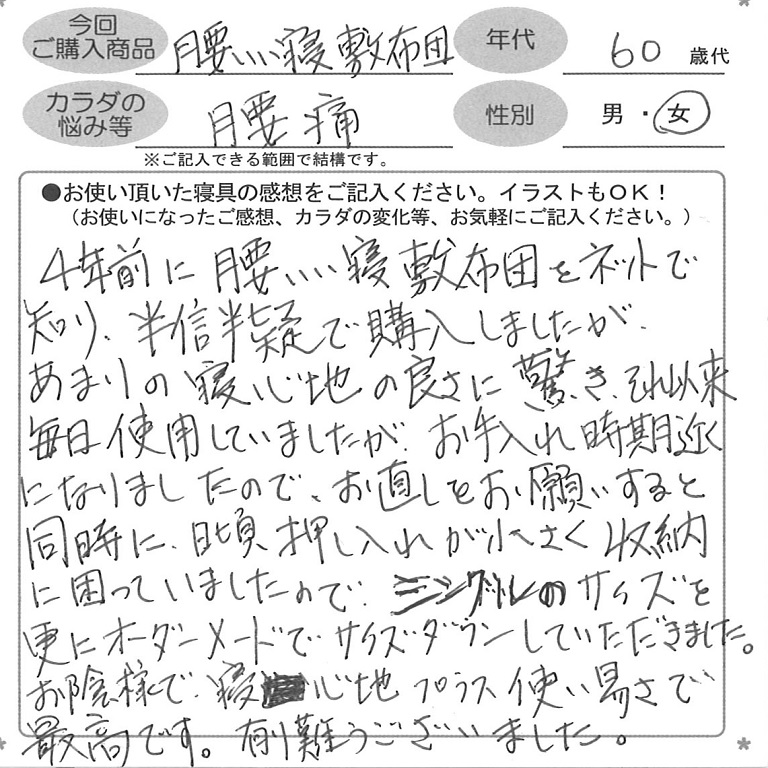 今回
ご購入商品
腰いい寝敷布団
年代
60 歳代
カラダの
悩み等
腰痛
性別
男・女
※ご記入できる範囲で結構です。
●お使い頂いた寝具の感想をご記入ください。イラストもOK！
（お使いになったご感想、カラダの変化等、お気軽にご記入ください。）
4年前に腰いい寝敷布団をネットで
知り、半信半疑で購入しましたが、
あまりの寝心地の良さに驚き、それ以来
毎日使用していましたが、お手入れ時期近く
になりましたので、お直しをお願いすると
同時に、日頃押し入れが小さく収納
に困っていましたので、シングルのサイズを
更にオーダーメードでサイズダウンしていただきました。
お陰様で、寝心地プラス使い易さで
最高です。有り難うございました。